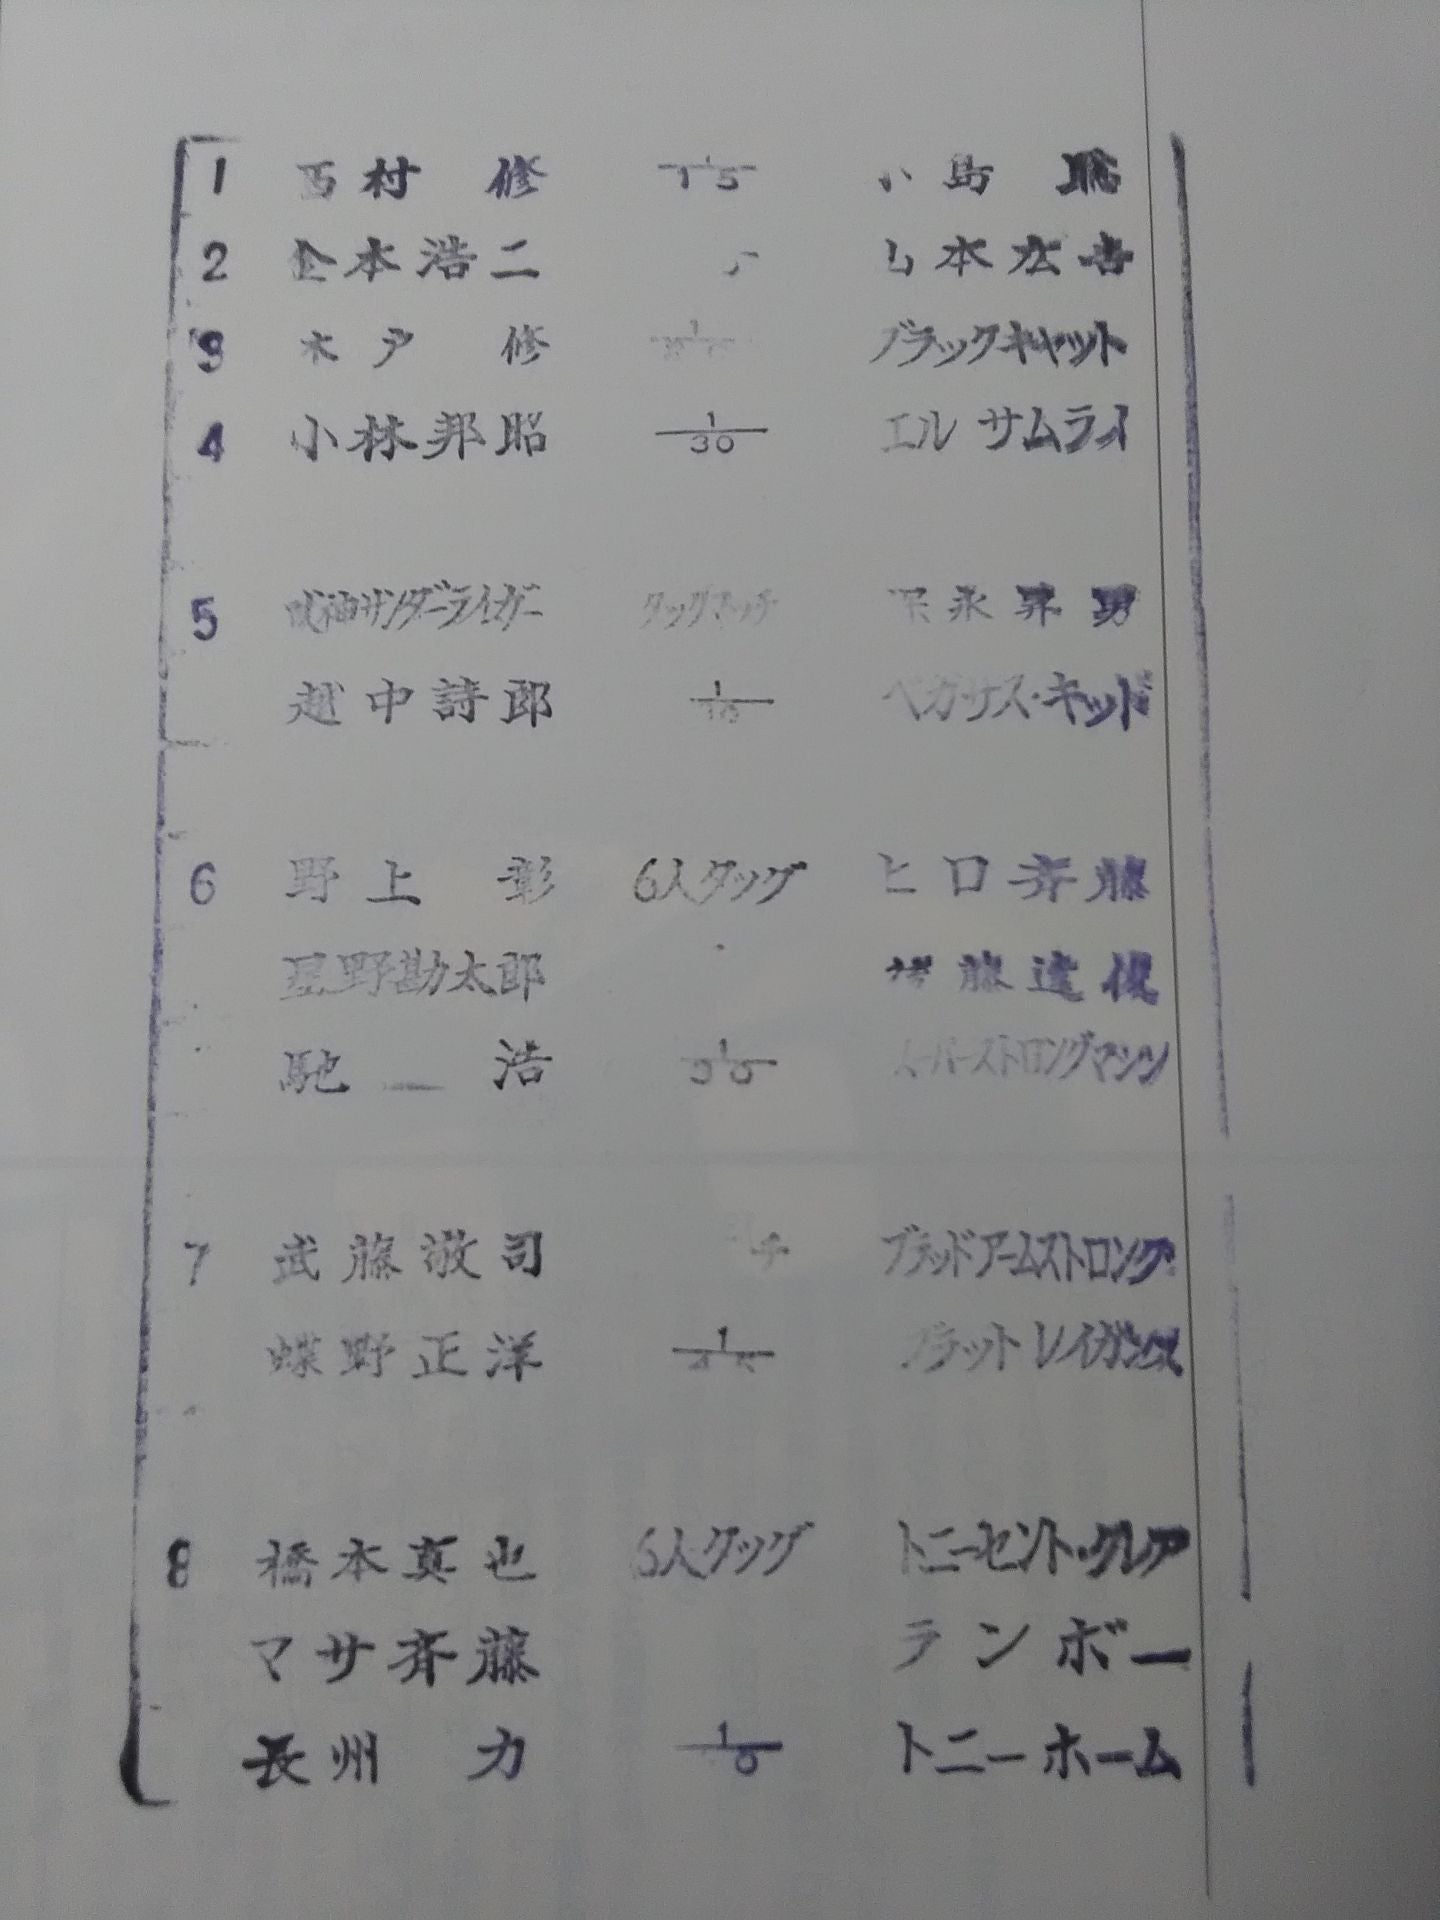 1 西村 修 1/15 小島 聡
2 金本浩二 山本広吉
3 木戸 修 ブラックキャット
4 小林邦昭 1/30 エルサムライ
5 獣神サンダーライガー タッグマッチ 保永昇男
越中詩郎 ペガサス・キッド
6 野上 彰 6人タッグ ヒロ斉藤
星野勘太郎 後藤達俊
馳 浩 スーパーストロングマシン
7 武藤敬司 チ ブラッドアームストロング
蝶野正洋 1/45 ブラットレイガンス
8 橋本真也 6人タッグ トニーセント・クレア
マサ斉藤 ランボー
長州 力 トニーホーム